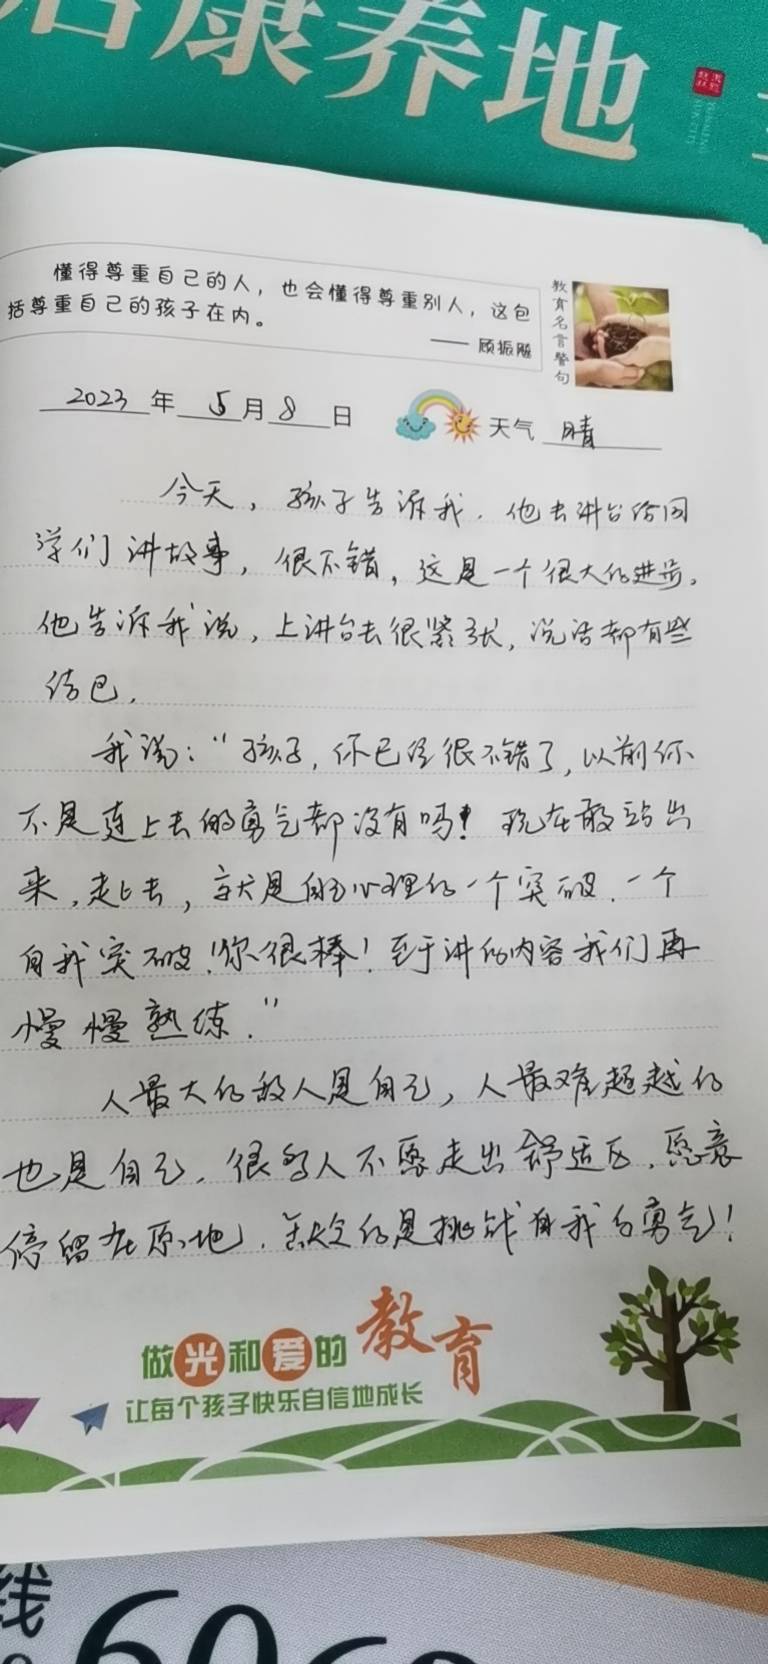 康养地
懂得尊重自己的人，也会懂得尊重别人，这包
括尊重自己的孩子在内。
—— 顾振飚
教育名言警句
2023年5月8日 天气 晴
今天，孩子告诉我，他去讲台给同
学们讲故事，很不错，这是一个很大的进步。
他告诉我说，上讲台去很紧张，说话都有些
结巴。
我说：“孩子，你已经很不错了，以前你
不是连上去的勇气都没有吗！现在敢站出
来，走上去，就是自己心理的一个突破，一个
自我突破！你很棒！至于讲的内容我们再
慢慢熟练。”
人最大的敌人是自己，人最难超越的
也是自己，很多人不愿走出舒适区，愿意
停留在原地，缺乏的是挑战自我的勇气！
做光和爱的教育
让每个孩子快乐自信地成长
线